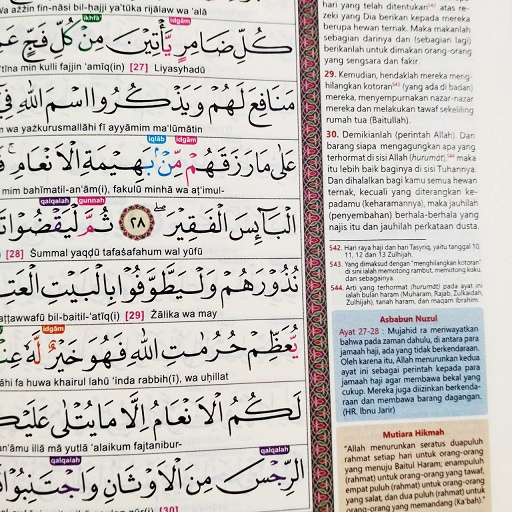 Wa ażżin fin-nāsi bil-ḥajji ya'tūka rijālaw wa 'alā
ikhfā' idgām
كُلِّ ضَامِرٍ يَّأْتِيْنَ مِنْ كُلِّ فَجٍّ
min kulli fajjin 'amīq(in) [27] Liyasyhadū
مَنَافِعَ لَهُمْ وَيَذْكُرُوا اسْمَ اللّٰهِ فِيْٓ
wa yażkurusmallāhi fī ayyāmim ma'lūmātin
iqlāb idgām
عَلٰى مَا رَزَقَهُمْ مِّنْۢ بَهِيْمَةِ الْاَنْعَامِۚ
mim bahīmatil-an'ām(i), fakulū minhā wa aṭ'imul-
qalqalah gunnah
الْبَاۤىِٕسَ الْفَقِيْرَ ۖ ٢٨ ثُمَّ لْيَقْضُوْا
[28] Ṡummal yaqḍū tafaṡahum wal yūfū
نُذُوْرَهُمْ وَلْيَطَّوَّفُوْا بِالْبَيْتِ
bil-baitil-'atīq(i) [29] Żālika wa may
idgām
يُّعَظِّمْ حُرُمٰتِ اللّٰهِ فَهُوَ خَيْرٌ لَّهٗ
fa huwa khairul lahū 'inda rabbih(ī), wa uḥillat
لَكُمُ الْاَنْعَامُ اِلَّا مَا يُتْلٰى
illā mā yutlā 'alaikum fajtanibur-
qalqalah qalqalah
الرِّجْسَ مِنَ الْاَوْثَانِ وَاجْتَنِبُوْا
[30]
hari yang telah ditentukan⁵⁴² atas re-
zeki yang Dia berikan kepada mereka
berupa hewan ternak. Maka makanlah
sebagian darinya dan (sebagian lagi)
berikanlah untuk dimakan orang-orang
yang sengsara dan fakir.
29. Kemudian, hendaklah mereka meng-
hilangkan kotoran⁵⁴³ (yang ada di badan)
mereka, menyempurnakan nazar-nazar
mereka dan melakukan tawaf sekeliling
rumah tua (Baitullah).
30. Demikianlah (perintah Allah). Dan
barang siapa mengagungkan apa yang
terhormat di sisi Allah (hurumāt),⁵⁴⁴ maka
itu lebih baik baginya di sisi Tuhannya.
Dan dihalalkan bagi kamu semua hewan
ternak, kecuali yang diterangkan ke-
padamu (keharamannya), maka jauhilah
(penyembahan) berhala-berhala yang
najis itu dan jauhilah perkataan dusta.
542. Hari raya haji dan hari Tasyriq, yaitu tanggal 10,
11, 12 dan 13 Zulhijah.
543. Yang dimaksud dengan "menghilangkan kotoran"
di sini ialah memotong rambut, memotong kuku,
dan sebagainya.
544. Arti yang terhormat (hurumāt) pada ayat ini
ialah bulan haram (Muharam, Rajab, Zulkaidah,
Zulhijah), tanah haram, dan maqam Ibrahim.
Asbabun Nuzul
Ayat 27-28 : Mujahid ra meriwayatkan
bahwa pada zaman dahulu, di antara para
jamaah haji, ada yang tidak berkendaraan.
Oleh karena itu, Allah menurunkan kedua
ayat ini sebagai perintah kepada para
jamaah haji agar membawa bekal yang
cukup. Mereka juga diizinkan berkenda-
raan dan membawa barang dagangan.
(HR. Ibnu Jarir)
Mutiara Hikmah
"Allah menurunkan seratus duapuluh
rahmat setiap hari untuk orang-orang
yang menuju Baitul Haram; enampuluh
(rahmat) untuk orang-orang yang tawaf,
empat puluh (rahmat) untuk orang-orang
yang salat, dan dua puluh (rahmat) untuk
orang-orang yang memandang (Ka'bah)."